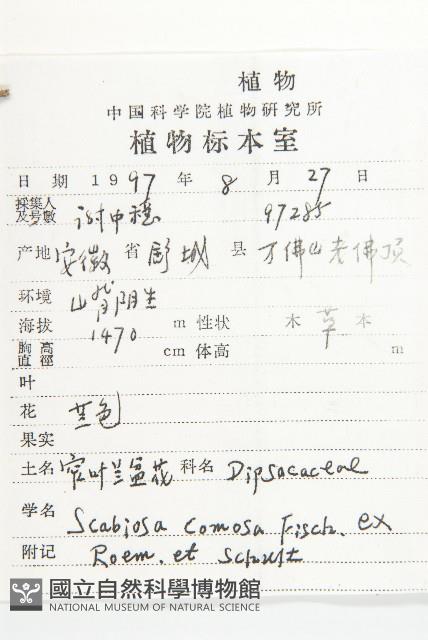 植物
中国科学院植物研究所
植物标本室
日 期 1997 年 8 月 27 日
採集人及号數 谢中稳 97285
产地 安徽 省 舒城 县 万佛山老佛顶
环境 山脊阴生
海拔 1470 m 性状 木 草 本
胸高直徑 cm 体高 m
叶
花 兰色
果实
土名 窄叶兰盆花 科名 Dipsacaceae
学名 Scabiosa comosa Fisch. ex
附记 Roem. et Schult
國立自然科學博物館
NATIONAL MUSEUM OF NATURAL SCIENCE